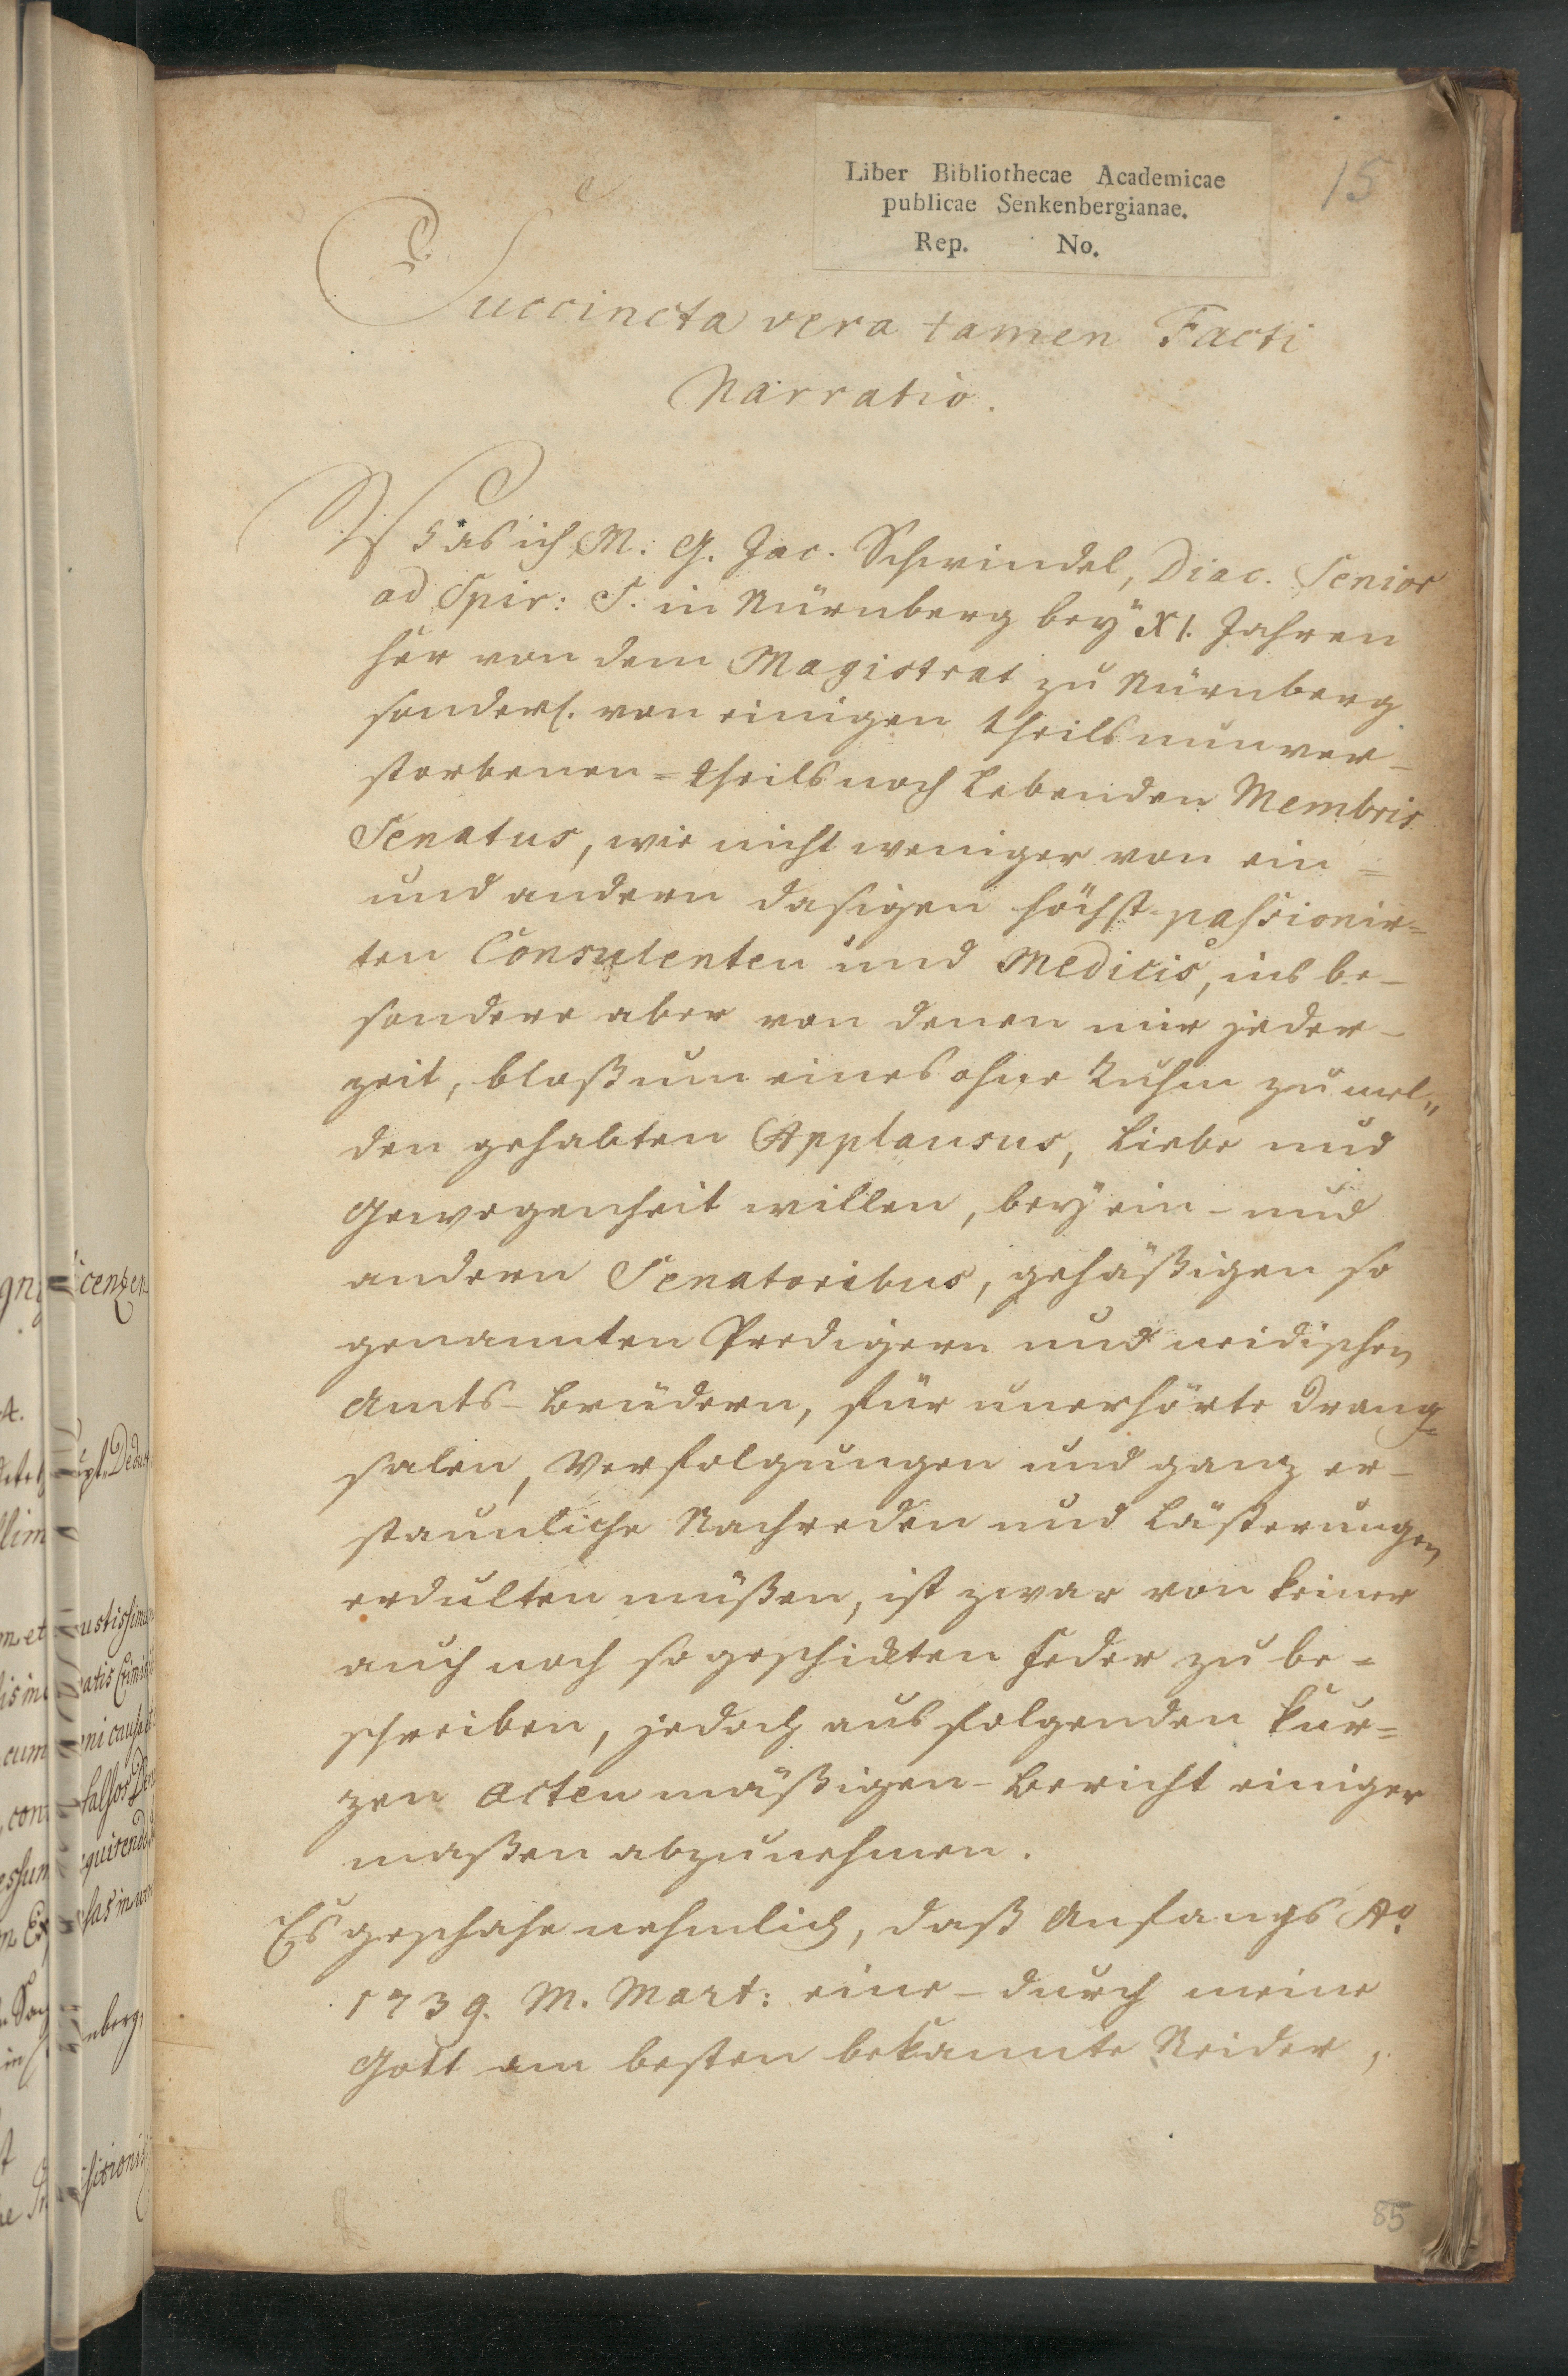 Liber Bibliothecae Academicae
publicae Senkenbergianae.
Rep. No.
15
Succincta vera tamen Facti
Narratio.
Was ich M. G. Jac. Schwindel, Diac. Senior
ad Spir: S. in Nürnberg beÿ XI. Jahren
her von dem Magistrat zu Nürnberg
sonderl. von einigen theils nun ver-
storbenen = theils noch Lebenden Membris
Senatus, wie nicht weniger von ein =
und andern dasigen höchst passionir=
ten Consulenten und Medicis, ins be-
sondere aber von denen mir jeder-
zeit, bloß um eines ohne Ruhm zu mel„
den gehabten Applausus, Liebe und
Gewogenheit willen, beÿ ein - und
andern Senatoribus, gehäßigen so
genannten Predigern und neidischen
Amts-Brüdern, für unerhörte Drang=
salen, Verfolgungen und ganz er-
staunliche Nachreden und Lästerungen
erdulten müßen, ist zwar von keiner
auch noch so geschickten Feder zu be=
schreiben, jedoch aus folgenden kur=
zen acten mäßigen - Bericht einiger
maßen abzunehmen.
Es geschahe nehmlich, daß Anfangs Ao
1739. M. Mart: eine - durch meine
Gott am besten bekannte Neider,
85